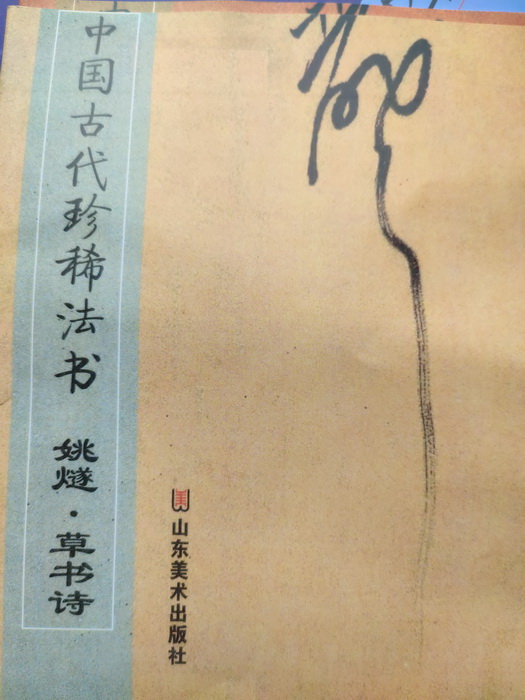 中国古代珍稀法书
姚燧·草书诗
美
山东美术出版社